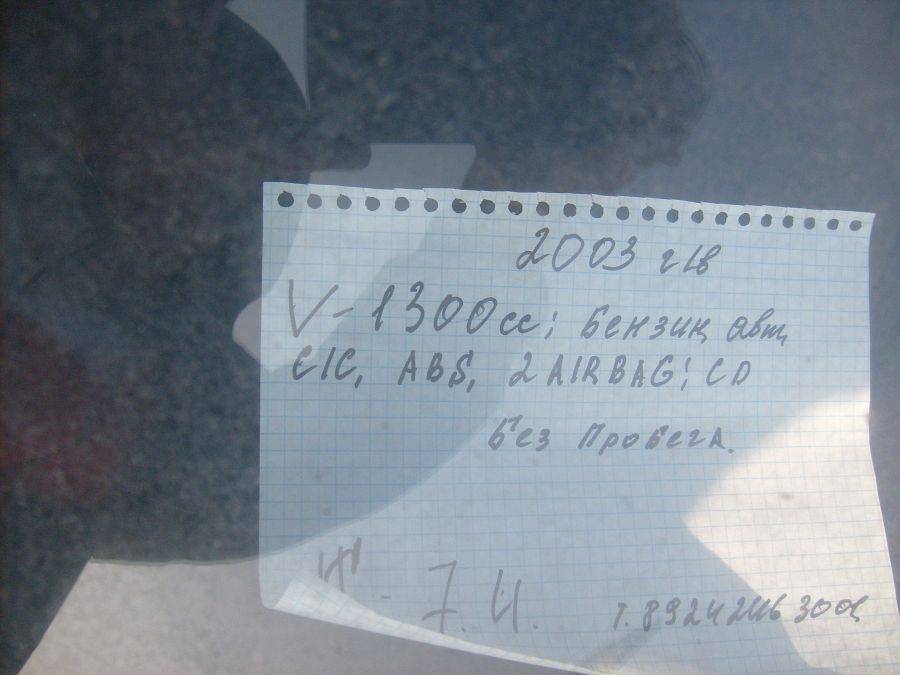 2003 г/в
V-1300cc; Бензин, авт,
С/С, ABS, 2 AIRBAG; CD
без Пробега.
- 7.4.
т.8924